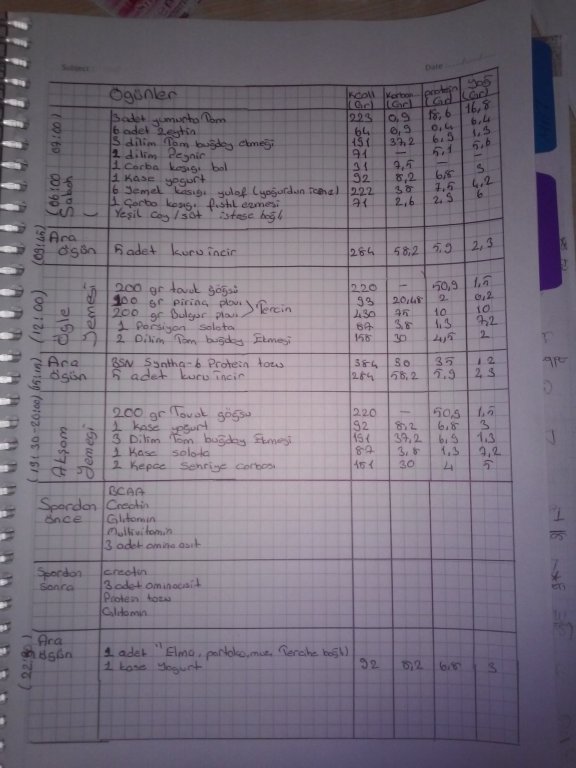 Subject : Date :
Öğünler Kcall (Gr) Karbon.. (Gr) protein (Gr) Yağ (Gr)
(06:00 07:00) Sabah
3 adet yumurta Tam 223 0,9 18,6 16,8
6 adet Zeytin 64 0,9 0,4 6,4
3 dilim Tam buğday ekmeği 191 37,2 6,9 1,3
2 dilim Peynir 71 — 5,1 5,6
1 Çorba kaşığı bal 31 7,5 — —
1 Kase yoğurt 92 8,2 6,8 3
6 Yemek kaşığı yulaf (yoğurdun içine) 222 38 7,5 4,2
1 Çorba kaşığı fıstık ezmesi 71 2,6 2,9 6
Yeşil Çay / süt isteğe bağlı
(09:45) Ara Öğün
5 adet kuru incir 284 58,2 5,9 2,3
(12:00) Öğle Yemeği
200 gr tavuk göğsü 220 — 50,9 1,5
100 gr pirinç pilavı 93 20,48 2 0,2
200 gr Bulgur pilavı > Tercih 430 75 10 10
1 Porsiyon salata 87 3,8 1,3 7,2
2 Dilim Tam buğday Ekmeği 158 30 4,5 2
Ara Öğün
BSN Syntha-6 Protein tozu 384 30 35 12
5 adet kuru incir 284 58,2 5,9 2,3
(19:30-20:00) Akşam Yemeği
200 gr Tavuk göğsü 220 — 50,9 1,5
1 Kase yoğurt 92 8,2 6,8 3
3 Dilim Tam buğday Ekmeği 191 37,2 6,9 1,3
1 Kase salata 87 3,8 1,3 7,2
2 Kepçe Şehriye çorbası 151 30 4 5
Spordan önce
BCAA
Creatin
Glitamin
Multivitamin
3 adet amino asit
Spordan sonra
creatin
3 adet aminoasit
Protein tozu
Glitamin
Ara Öğün
1 adet "Elma, portakal, muz, Tercihe bağlı)
1 kase Yoğurt 92 8,2 6,8 3